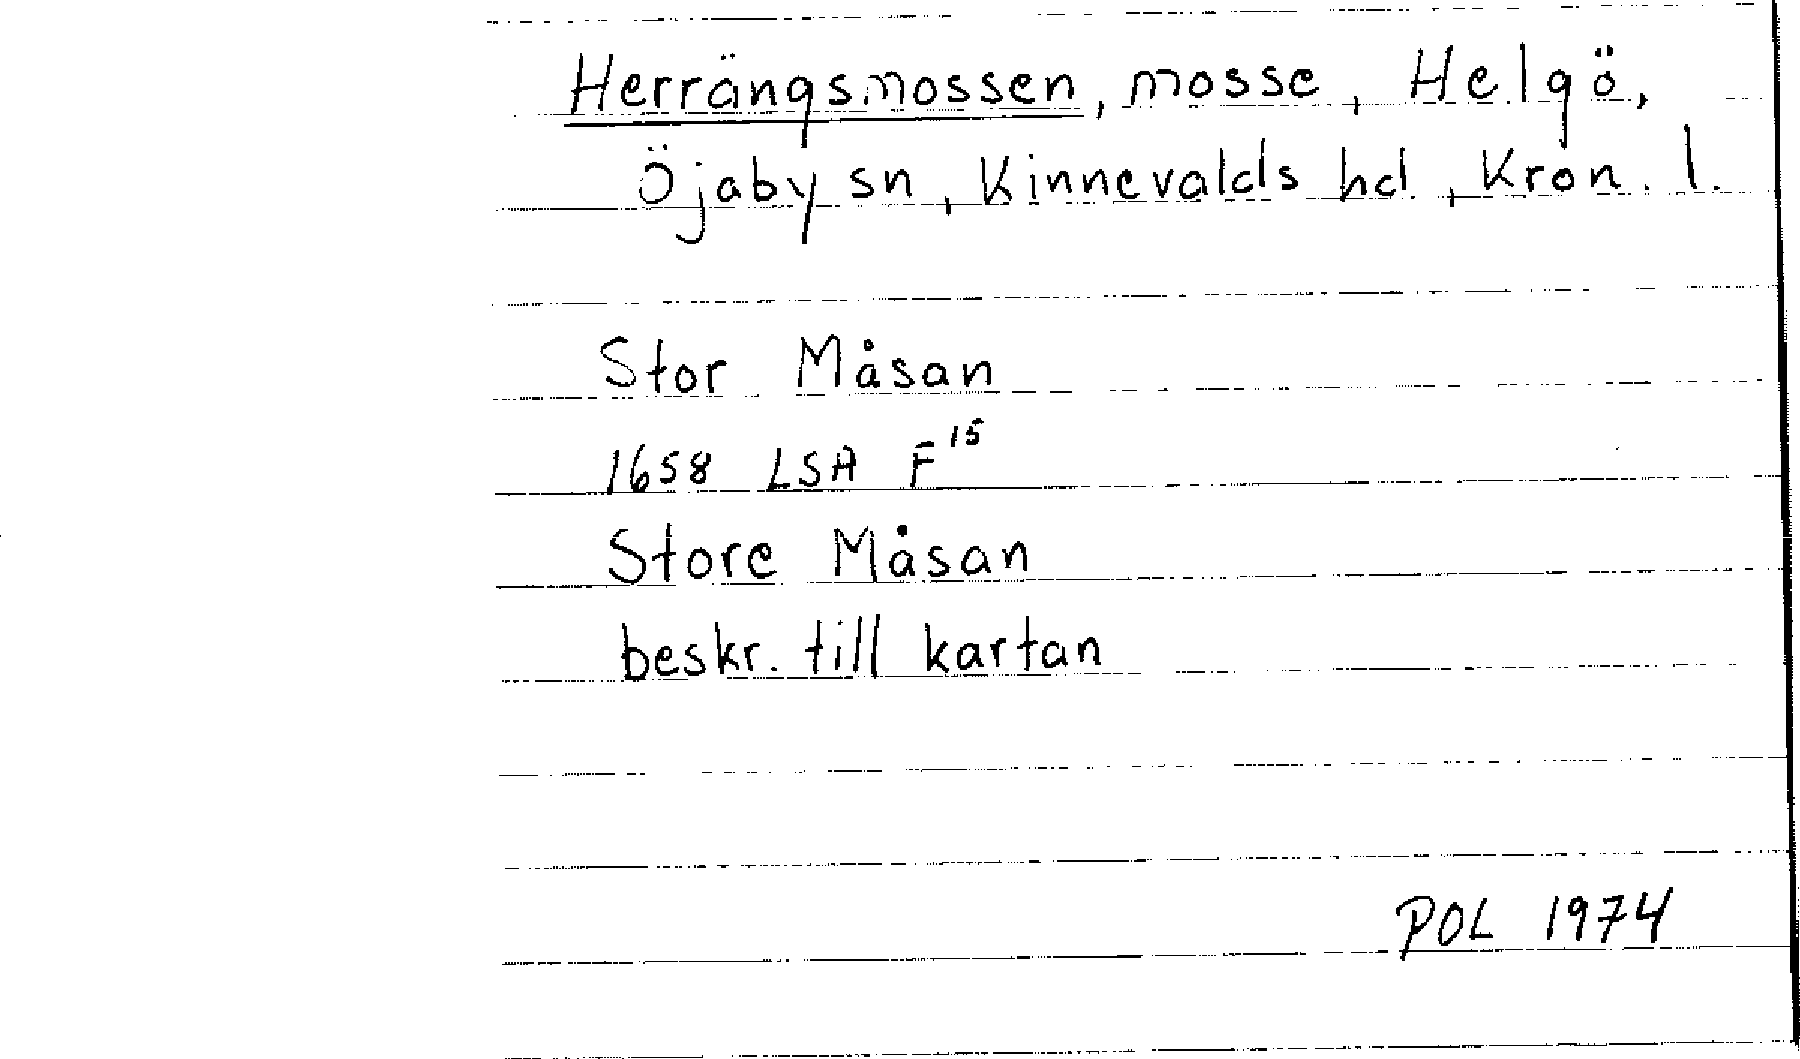 Herrängsmossen, mosse, Helgö,
Öjaby sn, Kinnevalds hd, Kron. l.
Stor Måsan
1658 LSA F¹⁵
Store Måsan
beskr. till kartan
POL 1974